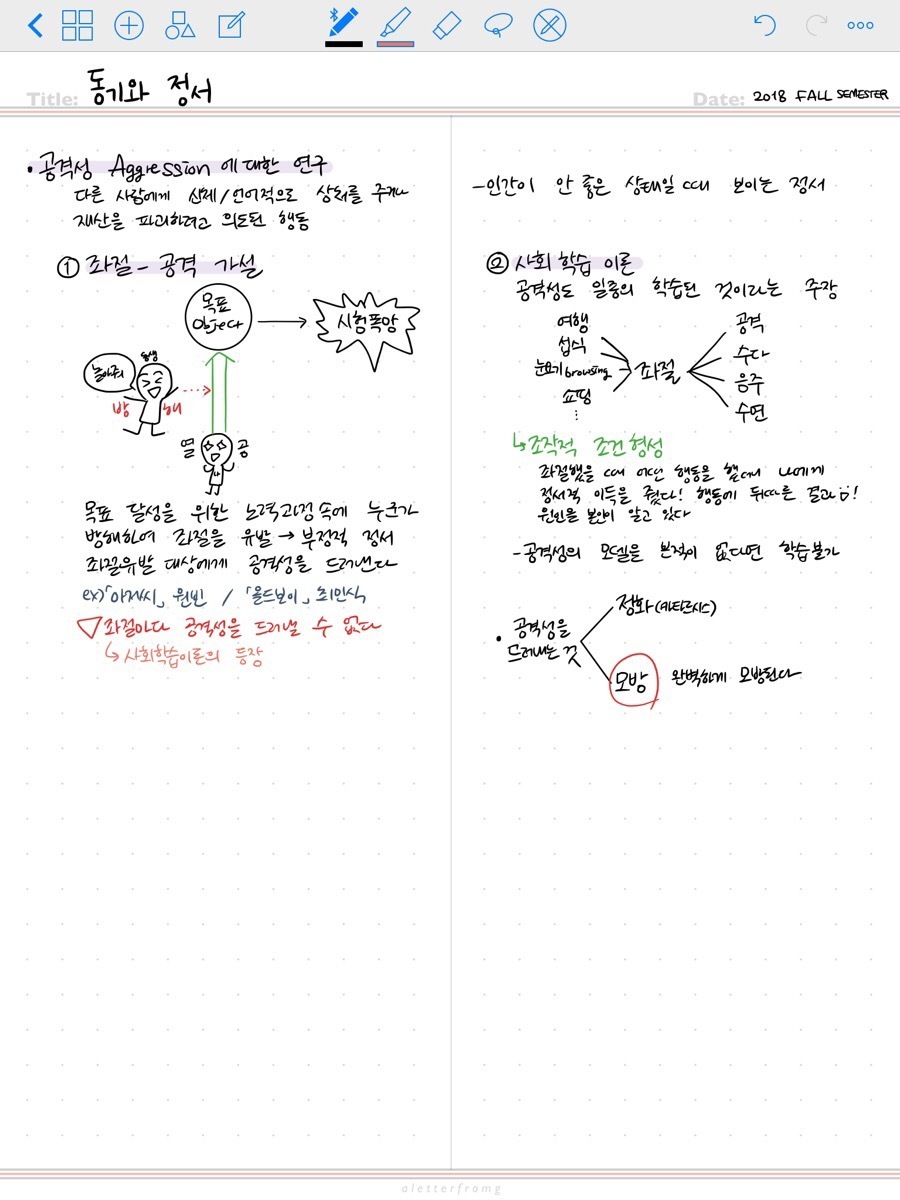 Title: 동기와 정서
Date: 2018 FALL SEMESTER
• 공격성 Aggression에 대한 연구
다른 사람에게 신체/언어적으로 상처를 주거나
재산을 파괴하려고 의도된 행동
① 좌절 - 공격 가설
목표
object
시험폭망
놀아줘
동생
방해
열공
목표 달성을 위한 노력과정 속에 누군가
방해하여 좌절을 유발 → 부정적 정서
좌절유발 대상에게 공격성을 드러낸다
ex) 「아저씨」 원빈 / 「올드보이」 최민식
▽ 좌절마다 공격성을 드러낼 수 없다
↳ 사회학습이론의 등장
- 인간이 안 좋은 상태일 때 보이는 정서
② 사회 학습 이론
공격성도 일종의 학습된 것이라는 주장
여행
섭식
눈요기 browsing
쇼핑
⋮
좌절
공격
수다
음주
수면
↳ 조작적 조건 형성
좌절했을 때 어떤 행동을 했더니 나에게
정서적 이득을 줬다! 행동에 뒤따른 결과!
원인을 본인이 알고 있다
- 공격성의 모델을 본적이 없다면 학습불가
• 공격성을
드러내는 것
정화 (카타르시스)
모방 완벽하게 모방된다
aletterfromg